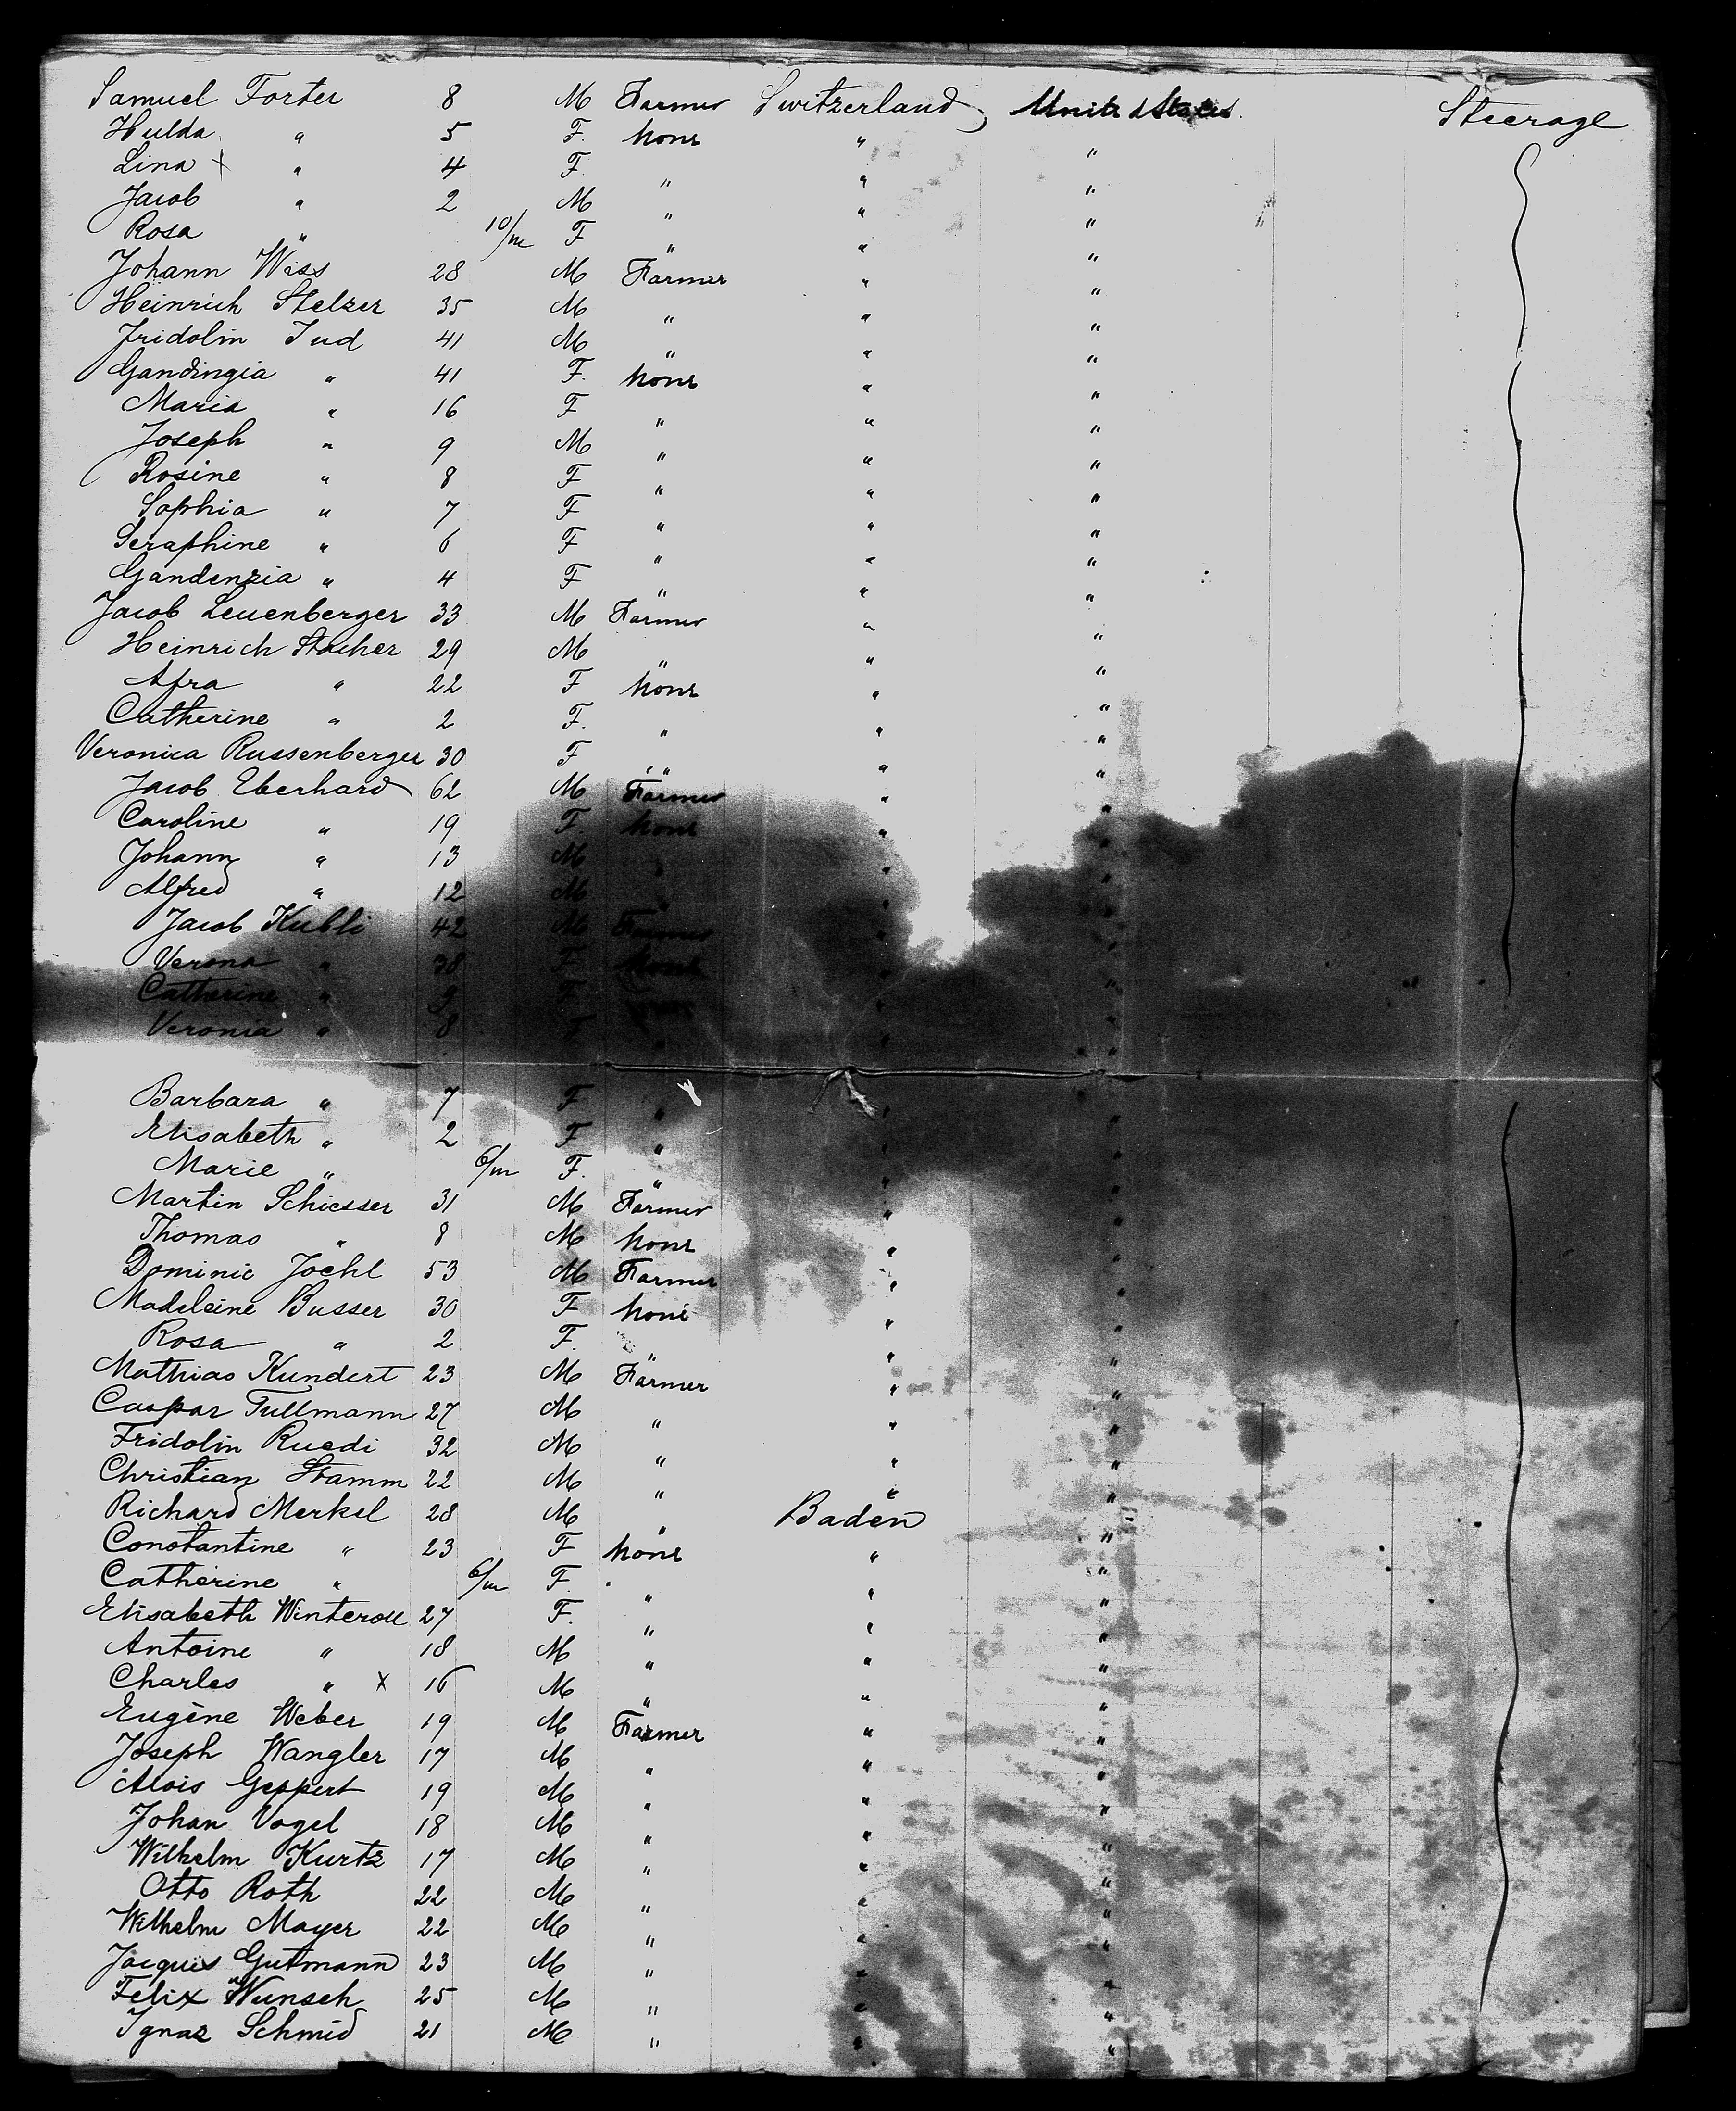 Samuel Forter 8 M Farmer Switzerland, United States. Steerage
Hulda " 5 F. none " "
Lina x " 4 F. " " "
Jacob " 2 M " " "
Rosa " 10/m F " " "
Johann Wiss 28 M Farmer " "
Heinrich Stelzer 35 M " " "
Fridolin Jud 41 M " " "
Gandingia " 41 F. none " "
Maria " 16 F " " "
Joseph " 9 M " " "
Rosine " 8 F " " "
Sophia " 7 F " " "
Seraphine " 6 F " " "
Gandenzia " 4 F " " "
Jacob Leuenberger 33 M Farmer " "
Heinrich Stacher 29 M " " "
Afra " 22 F none " "
Catherine " 2 F. " " "
Veronica Russenberger 30 F " " "
Jacob Eberhard 62 M Farmer " "
Caroline " 19 F. none " "
Johann " 13 M " " "
Alfred " 12 M " " "
Jacob Kubli 42 M Farmer " "
Verona " 38 F none " "
Catherine " 9 F " "
Veronia " 8 F " " "
Barbara " 7 F " " "
Elisabeth " 2 F " " "
Marie " 6/m F. " " "
Martin Schiesser 31 M Farmer " "
Thomas " 8 M none " "
Dominic Jochl 53 M Farmer " "
Madeleine Busser 30 F none " "
Rosa " 2 F. " " "
Mathias Kundert 23 M Farmer " "
Caspar Tullmann 27 M " " "
Fridolin Ruedi 32 M " " "
Christian Stamm 22 M " " "
Richard Merkel 28 M " Baden "
Constantine " 23 F none " "
Catherine " 6/m F. " " "
Elisabeth Winteroll 27 F. " " "
Antoine " 18 M " " "
Charles " x 16 M " " "
Eugène Weber 19 M Farmer " "
Joseph Wangler 17 M " " "
Alois Geppert 19 M " " "
Johan Vogel 18 M " " "
Wilhelm Kurtz 17 M " " "
Otto Roth 22 M " " "
Wilhelm Mayer 22 M " " "
Jacques Gutmann 23 M " " "
Felix Wunsch 25 M " " "
Ignaz Schmid 21 M " " "